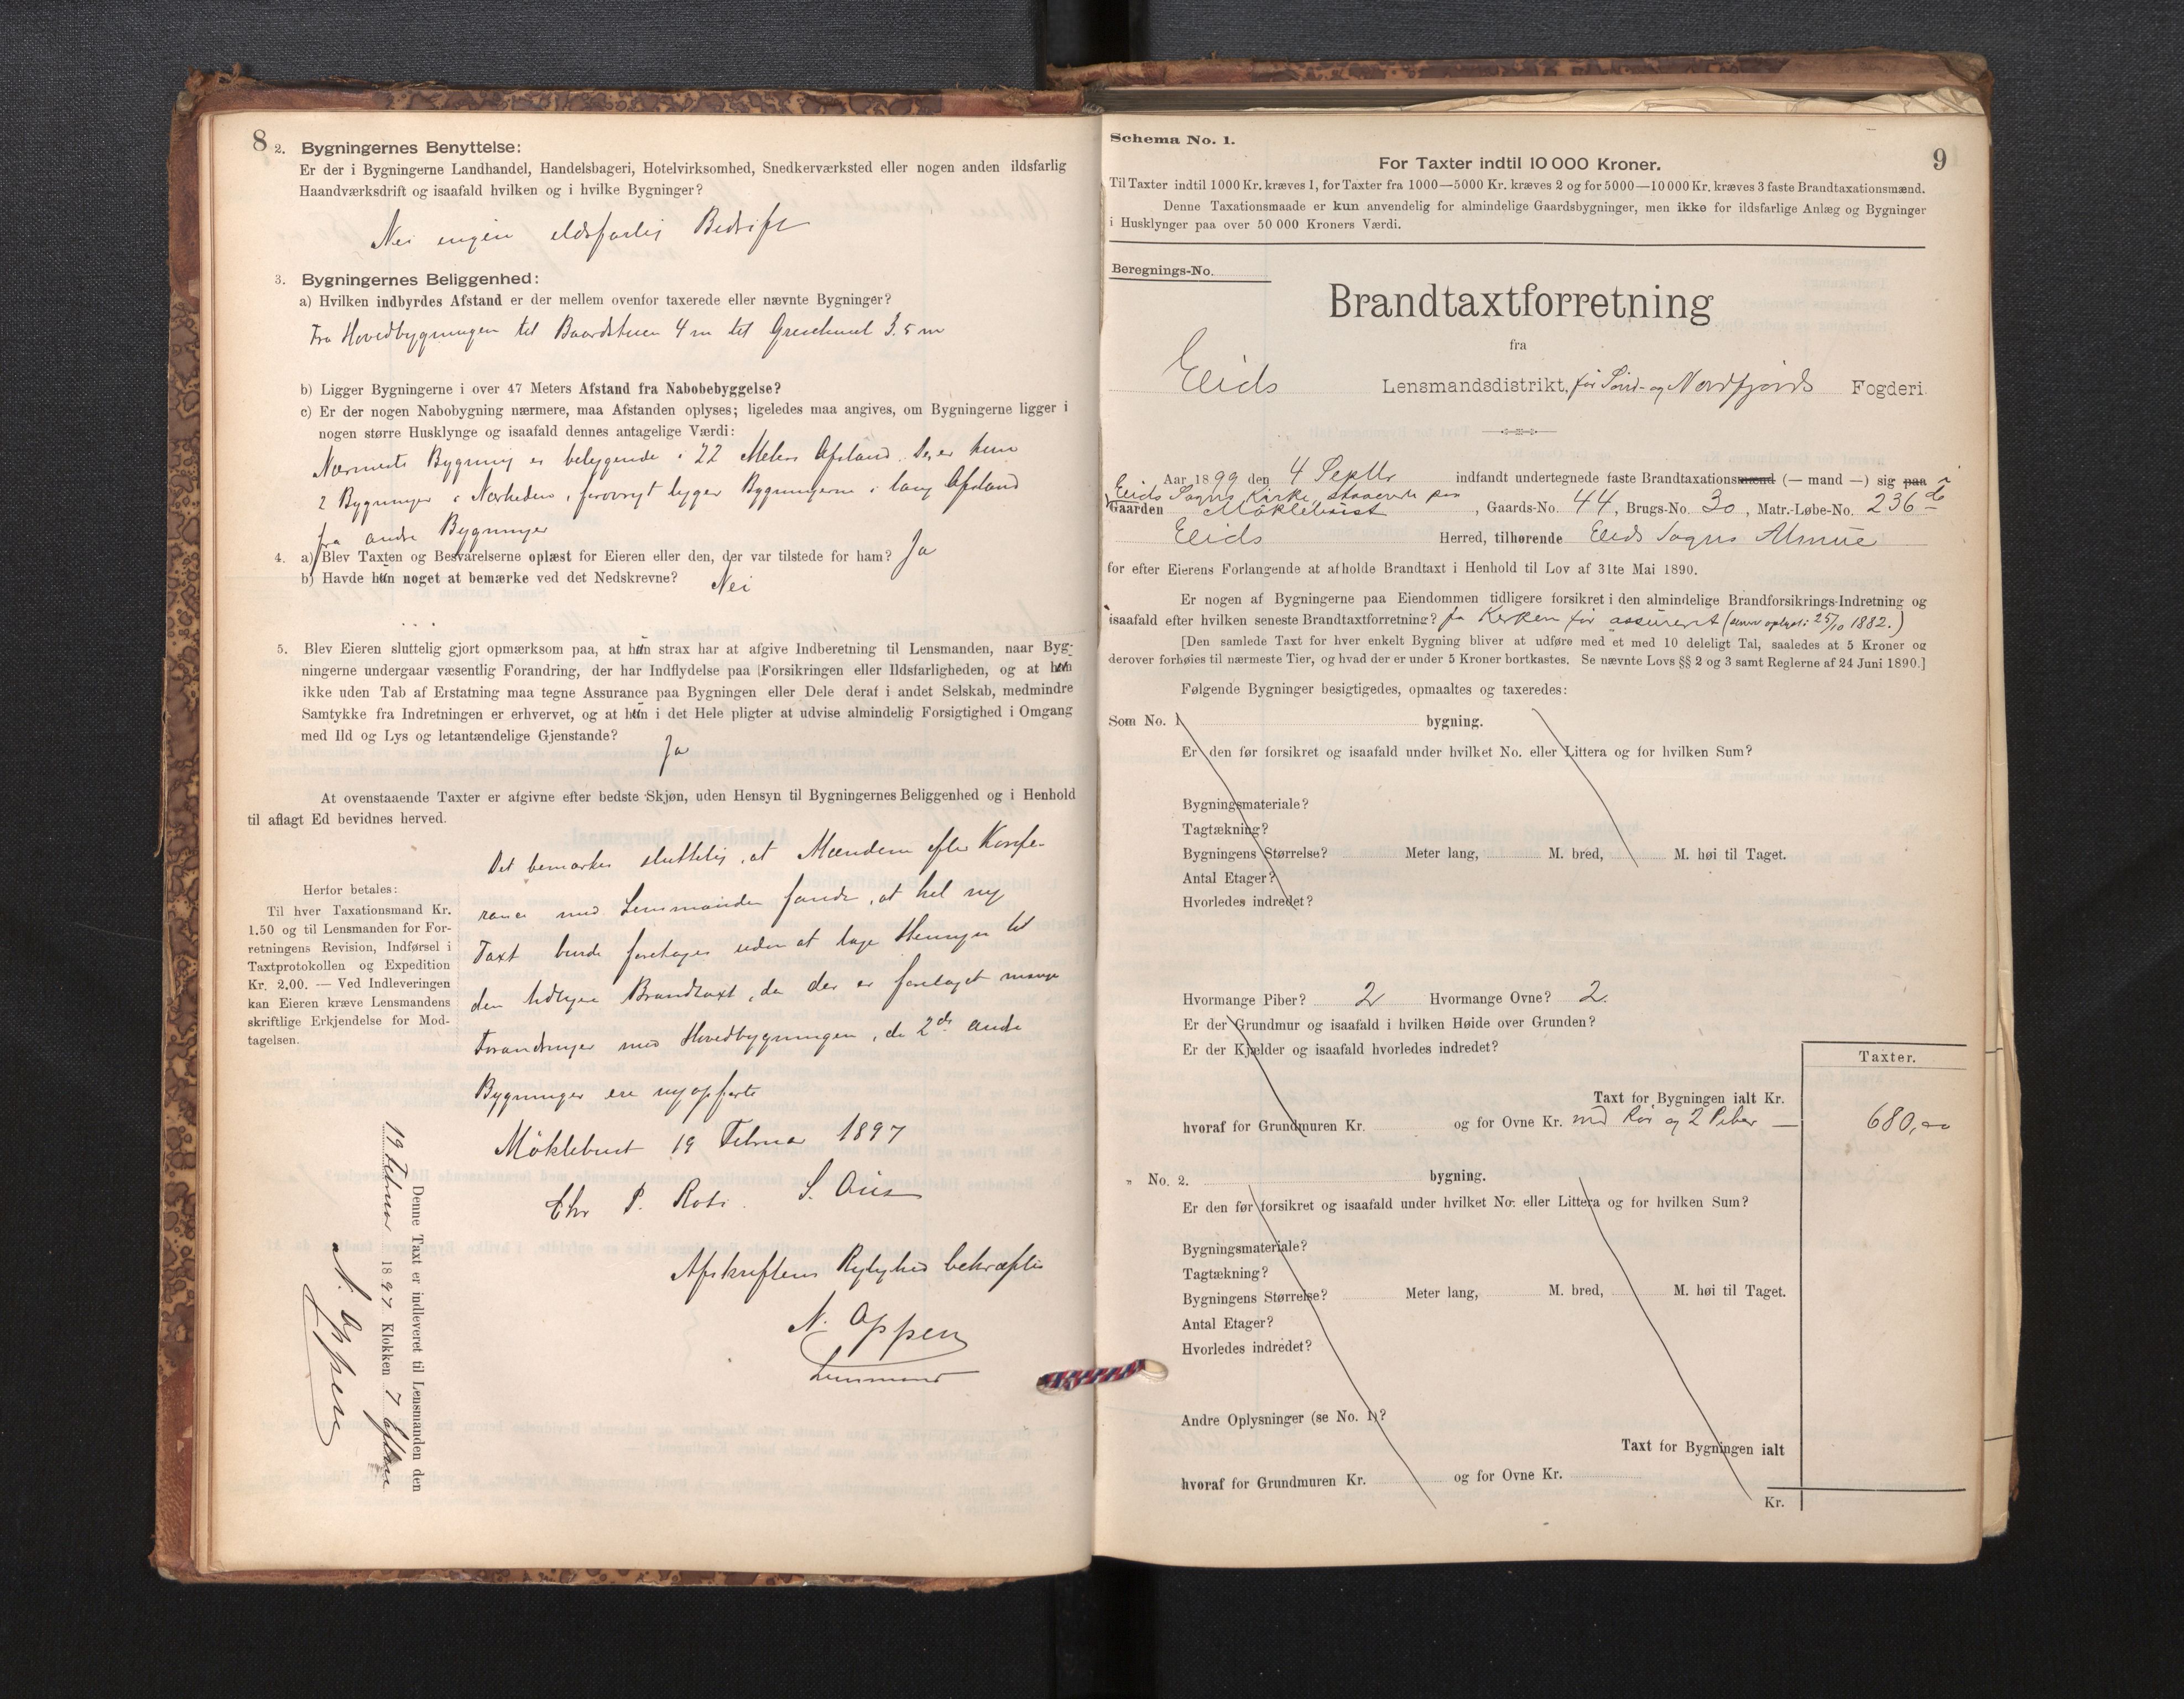 8
2. Bygningernes Benyttelse:
Er der i Bygningerne Landhandel, Handelsbageri, Hotelvirksomhed, Snedkerværksted eller nogen anden ildsfarlig
Haandværksdrift og isaafald hvilken og i hvilke Bygninger?
Nei ingen ildsfarlig Bedrift
3. Bygningernes Beliggenhed:
a) Hvilken indbyrdes Afstand er der mellem ovenfor taxerede eller nævnte Bygninger?
Fra Hovedbygningen til Baardstuen 4 m til 3.5 m
b) Ligger Bygningerne i over 47 Meters Afstand fra Nabobebyggelse?
c) Er der nogen Nabobygning nærmere, maa Afstanden oplyses; ligeledes maa angives, om Bygningerne ligger i
nogen større Husklynge og isaafald dennes antagelige Værdi:
Nærmeste Bygning er beliggende i 22 Meters Afstand. Der er kun
2 Bygninger i Nærheden, forøvrigt ligger Bygningerne i lang Afstand
fra andre Bygninger
4. a) Blev Taxten og Besvarelserne oplæst for Eieren eller den, der var tilstede for ham? Ja
b) Havde han noget at bemærke ved det Nedskrevne? Nei
5. Blev Eieren sluttelig gjort opmærksom paa, at han strax har at afgive Indberetning til Lensmanden, naar Byg-
ningerne undergaar væsentlig Forandring, der har Indflydelse paa Forsikringen eller Ildsfarligheden, og at han
ikke uden Tab af Erstatning maa tegne Assurance paa Bygningen eller Dele deraf i andet Selskab, medmindre
Samtykke fra Indretningen er erhvervet, og at han i det Hele pligter at udvise almindelig Forsigtighed i Omgang
med Ild og Lys og letantændelige Gjenstande?
Ja
At ovenstaaende Taxter er afgivne efter bedste Skjøn, uden Hensyn til Bygningernes Beliggenhed og i Henhold
til aflagt Ed bevidnes herved.
Det bemærkes sluttelig, at Mændene efter Konfe-
rance med Lensmanden fandt, at hel ny
Taxt burde foretages uden at tage Hensyn til
den tidligere Brandtaxt, da der er foretaget mange
Forandringer med Hovedbygningen, de 2de andre
Bygninger ere nyopførte
Möklebust 19 Februar 1897
Chr P. Roti. S. Aus
Afskriftens Rigtighed bekræftes
N. Oppen
Lensmand
Herfor betales:
Til hver Taxationsmand Kr.
1.50 og til Lensmanden for For-
retningens Revision, Indførsel i
Taxtprotokollen og Expedition
Kr. 2.00. — Ved Indleveringen
kan Eieren kræve Lensmandens
skriftlige Erkjendelse for Mod-
tagelsen.
Denne Taxt er indleveret til Lensmanden den
19 Februar 1897 Klokken 7 Efterm
N. Oppen
Schema No. 1.
9
For Taxter indtil 10 000 Kroner.
Til Taxter indtil 1000 Kr. kræves 1, for Taxter fra 1000—5000 Kr. kræves 2 og for 5000—10 000 Kr. kræves 3 faste Brandtaxationsmænd.
Denne Taxationsmaade er kun anvendelig for almindelige Gaardsbygninger, men ikke for ildsfarlige Anlæg og Bygninger
i Husklynger paa over 50 000 Kroners Værdi.
Beregnings-No.
Brandtaxtforretning
fra
Eids Lensmandsdistrikt, for Sönd- og Nordfjords Fogderi.
Aar 1899 den 4 Septbr indfandt undertegnede faste Brandtaxationsmænd (— mand —) sig paa i
Eids Sogns Kirke staaende paa
Gaarden Möklebust, Gaards-No. 44, Brugs-No. 30, Matr.-Løbe-No. 236
Eids Herred, tilhørende Eids Sogns Almue
for efter Eierens Forlangende at afholde Brandtaxt i Henhold til Lov af 31te Mai 1890.
Er nogen af Bygningerne paa Eiendommen tidligere forsikret i den almindelige Brandforsikrings-Indretning og
isaafald efter hvilken seneste Brandtaxtforretning? Ja Kirken før assureret ( 25/10 1882.)
[Den samlede Taxt for hver enkelt Bygning bliver at udføre med et med 10 deleligt Tal, saaledes at 5 Kroner og
derover forhøies til nærmeste Tier, og hvad der er under 5 Kroner bortkastes. Se nævnte Lovs §§ 2 og 3 samt Reglerne af 24 Juni 1890.]
Følgende Bygninger besigtigedes, opmaaltes og taxeredes:
Som No. 1 bygning.
Er den før forsikret og isaafald under hvilket No. eller Littera og for hvilken Sum?
Bygningsmateriale?
Tagtækning?
Bygningens Størrelse? Meter lang, M. bred, M. høi til Taget.
Antal Etager?
Hvorledes indredet?
Hvormange Piber? 2 Hvormange Ovne? 2.
Er der Grundmur og isaafald i hvilken Høide over Grunden?
Er der Kjælder og isaafald hvorledes indredet?
Taxter.
Taxt for Bygningen ialt Kr.
hvoraf for Grundmuren Kr. og for Ovne Kr. med Rör og 2 Piber — 680,00
„ No. 2. bygning.
Er den før forsikret og isaafald under hvilket No. eller Littera og for hvilken Sum?
Bygningsmateriale?
Tagtækning?
Bygningens Størrelse? Meter lang, M. bred, M. høi til Taget.
Antal Etager?
Hvorledes indredet?
Andre Oplysninger (se No. 1)?
Taxt for Bygningen ialt
hvoraf for Grundmuren Kr. og for Ovne Kr.
Kr.